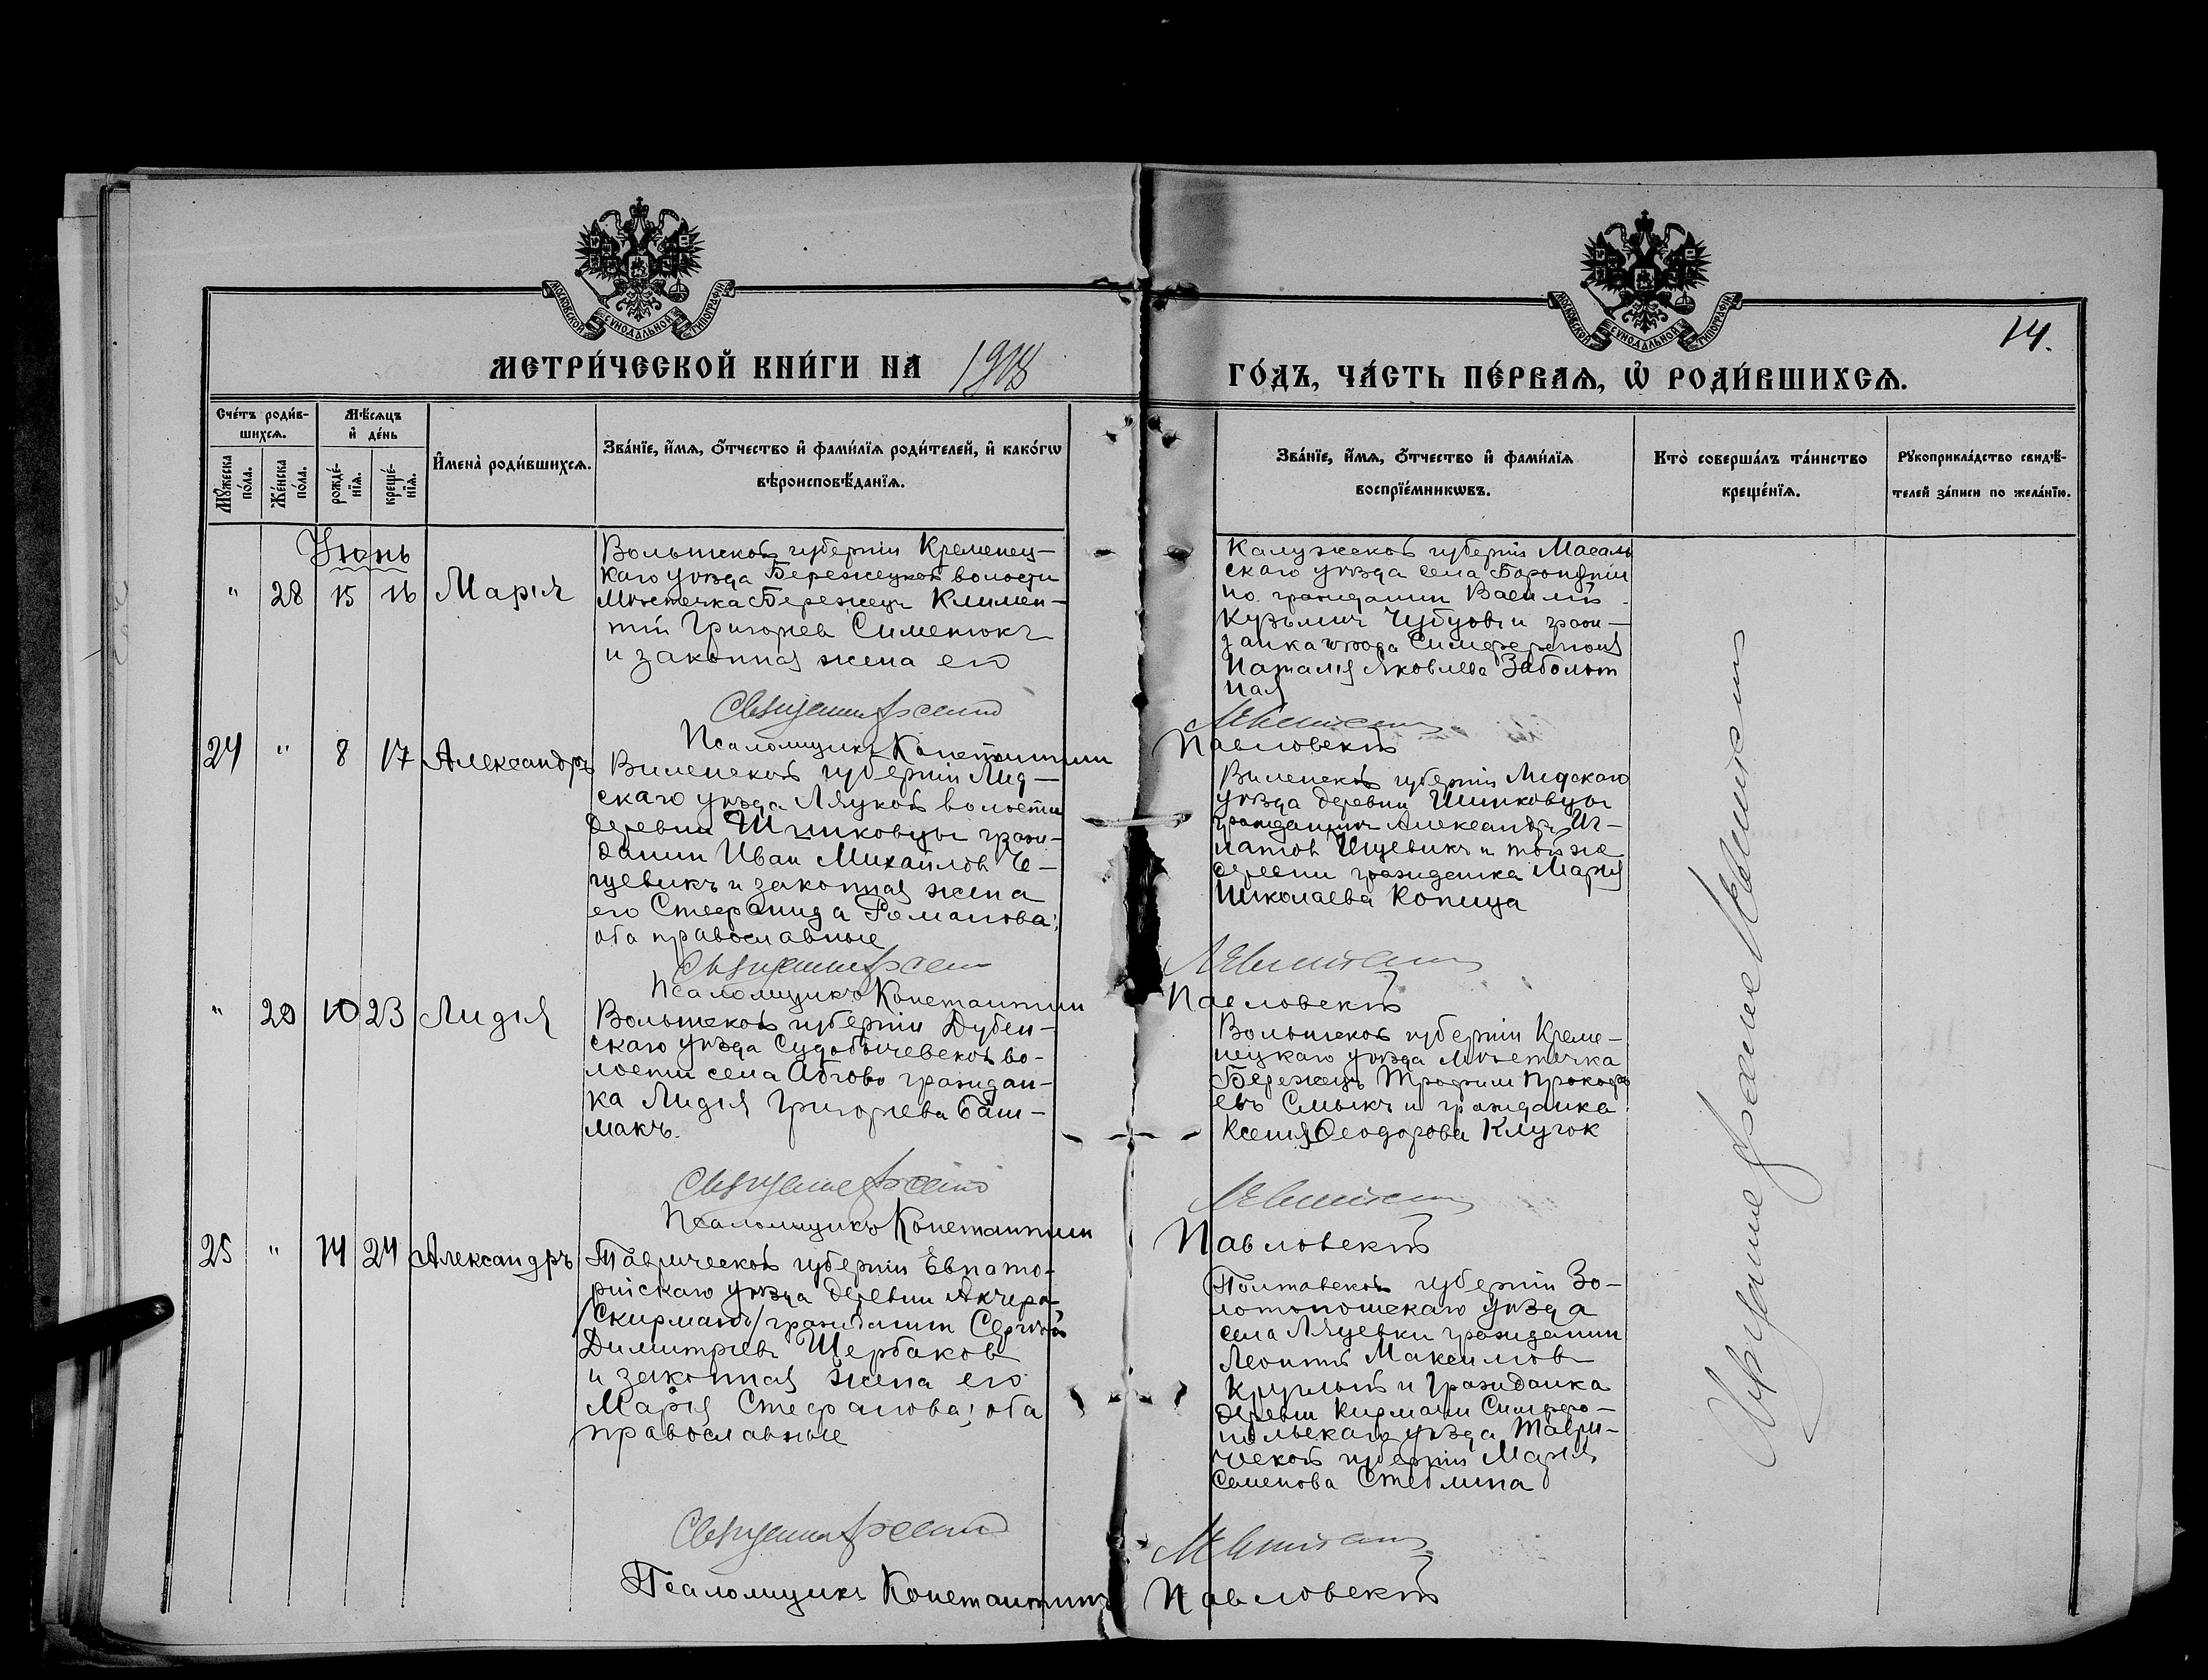 МОСКОВСКОЙ СѴНОДАЛЬНОЙ ТИПОГРАФІИ
МОСКОВСКОЙ СѴНОДАЛЬНОЙ ТИПОГРАФІИ
14.
МЕТРИ́ЧЕСКОЙ КНИ́ГИ НА 1918
ГО́ДЪ, ЧА́СТЬ ПЕ́РВАѦ, Ѡ РОДИ́ВШИХСѦ.
Сче́тъ роди́в-
шихсѧ.
Мꙋ́жеска по́ла.
Же́нска по́ла.
Мѣ́сѧцъ
и҆ де́нь
рожде́-
нїѧ.
креще́-
нїѧ.
И҆мена̀ роди́вшихсѧ.
Зва́нїе, и҆́мѧ, ѻ҆́тчество и҆ фами́лїѧ роди́телей, и҆ како́гѡ
вѣроисповѣ́данїѧ.
Зва́нїе, и҆́мѧ, ѻ҆́тчество и҆ фами́лїѧ
воспрїе́мникѡвъ.
Кто̀ соверша́лъ та́инство
креще́нїѧ.
Рꙋкоприкла́дство свидѣ́-
телей за́писи по жела́нїю.
Іюнь
" 28 15 16 Марія
Волынской губерніи Кременец-
каго уѣзда Бережецкой волости
Мѣстечка Бережецъ Климен-
тій Григорьев Сименюкъ
и законная жена его
Калужской губерніи Масаль
скаго уѣзда села
гражданин Василій
Кузьмич Чубуовъ и граж-
данка города Симферополя
Наталія Яковлева Заболот
ная
Священник
Псаломщикъ Константин Павловскій
24 " 8 17 Александръ
Виленской губерніи Лид-
скаго уѣзда Ляцкой волости
деревни Шинковцы граж-
данин Иван Михайлов
и законная жена
его Стефанида Романова;
оба православные
Виленской губерніи Лидскаго
уѣзда деревни Шинковцы
гражданинъ Александръ Иг-
натов и той же
деревни гражданка Марія
Николаева Копица
Священник
Псаломщикъ Константин Павловскій
" 29 10 23 Лидія
Волынской губерніи Дубен-
скаго уѣзда Судобичевской во-
лости села граждан-
ка Лидія Григорьева Баш-
макъ.
Волынской губерніи Креме-
нецкаго уѣзда мѣстечка
Бережецъ Трофим Прокофь
евъ Смыкъ и гражданка
Ксенія Ѳеодорова Клучок
Священник
Псаломщикъ Константин Павловскій
25 " 14 24 Александръ
Таврической губерніи Евпато-
рійскаго уѣзда деревни
гражданин Сергѣй
Димитріевъ Щербаков
и законная жена его
Марія Стефанова; оба
православные
Полтавской губерніи Зо-
лотоношскаго уѣзда
села Ляцевки гражданин
Леонтій Максимов
Круглый и гражданка
деревни Кирмачи Симферо-
польскаго уѣзда Таври-
ческой губерніи Марія
Семенова
Священник
Псаломщикъ Константинъ Павловскій